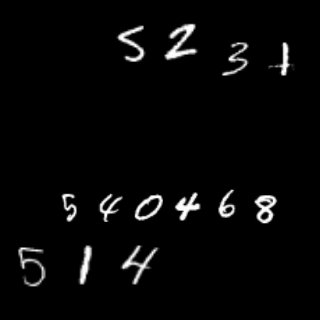 5231
540468
514